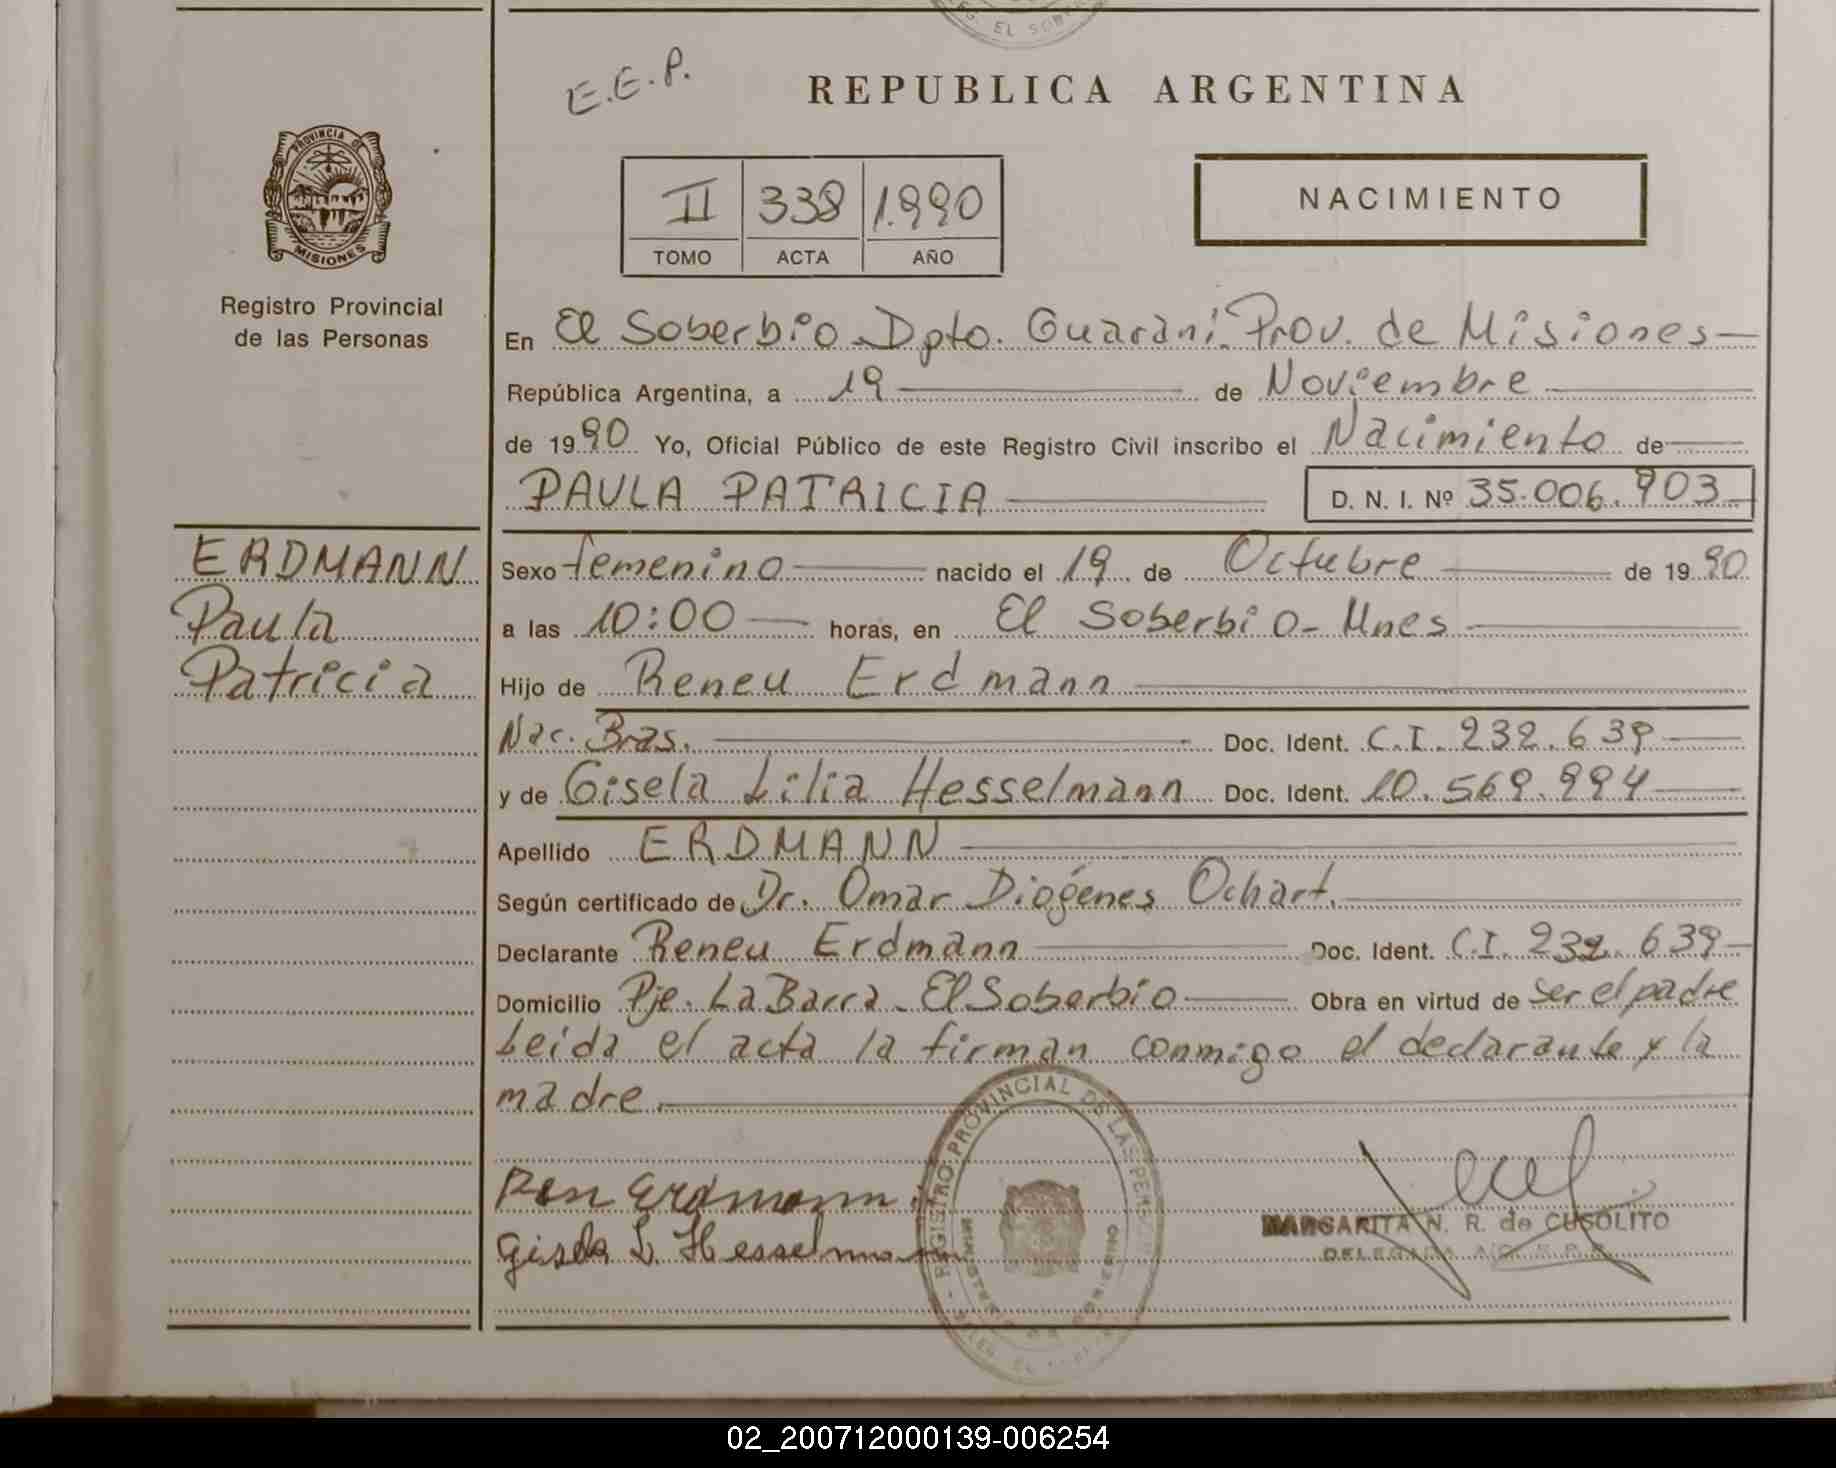 EG. EL SOBER
E.E.P.
REPUBLICA ARGENTINA
PROVINCIA DE
MISIONES
Registro Provincial
de las Personas
II 338 1.990
TOMO ACTA AÑO
NACIMIENTO
En El Soberbio Dpto. Guaraní Prov. de Misiones
República Argentina, a 19 de Noviembre
de 1990 Yo, Oficial Público de este Registro Civil inscribo el Nacimiento de
PAULA PATRICIA D. N. I. Nº 35.006.903
ERDMANN
Paula
Patricia
Sexo femenino nacido el 19 de Octubre de 1990
a las 10:00 horas, en El Soberbio - Mnes
Hijo de Reneu Erdmann
Nac. Bras. Doc. Ident. C.I. 232.639
y de Gisela Lilia Hesselmann Doc. Ident. 10.569.994
Apellido ERDMANN
Según certificado de Dr. Omar Diógenes Ochart.
Declarante Reneu Erdmann Doc. Ident. C.I. 232.639
Domicilio Pje. La Barra - El Soberbio Obra en virtud de ser el padre
Leida el acta la firman conmigo el declarante y la
madre.
REGISTRO PROVINCIAL DE LAS PERS
MINISTERIO DE GOBIERNO
Ren Erdmann
Gisela L. Hesselmann
MARGARITA N. R. de CUSOLITO
DELEGADA
02_200712000139-006254